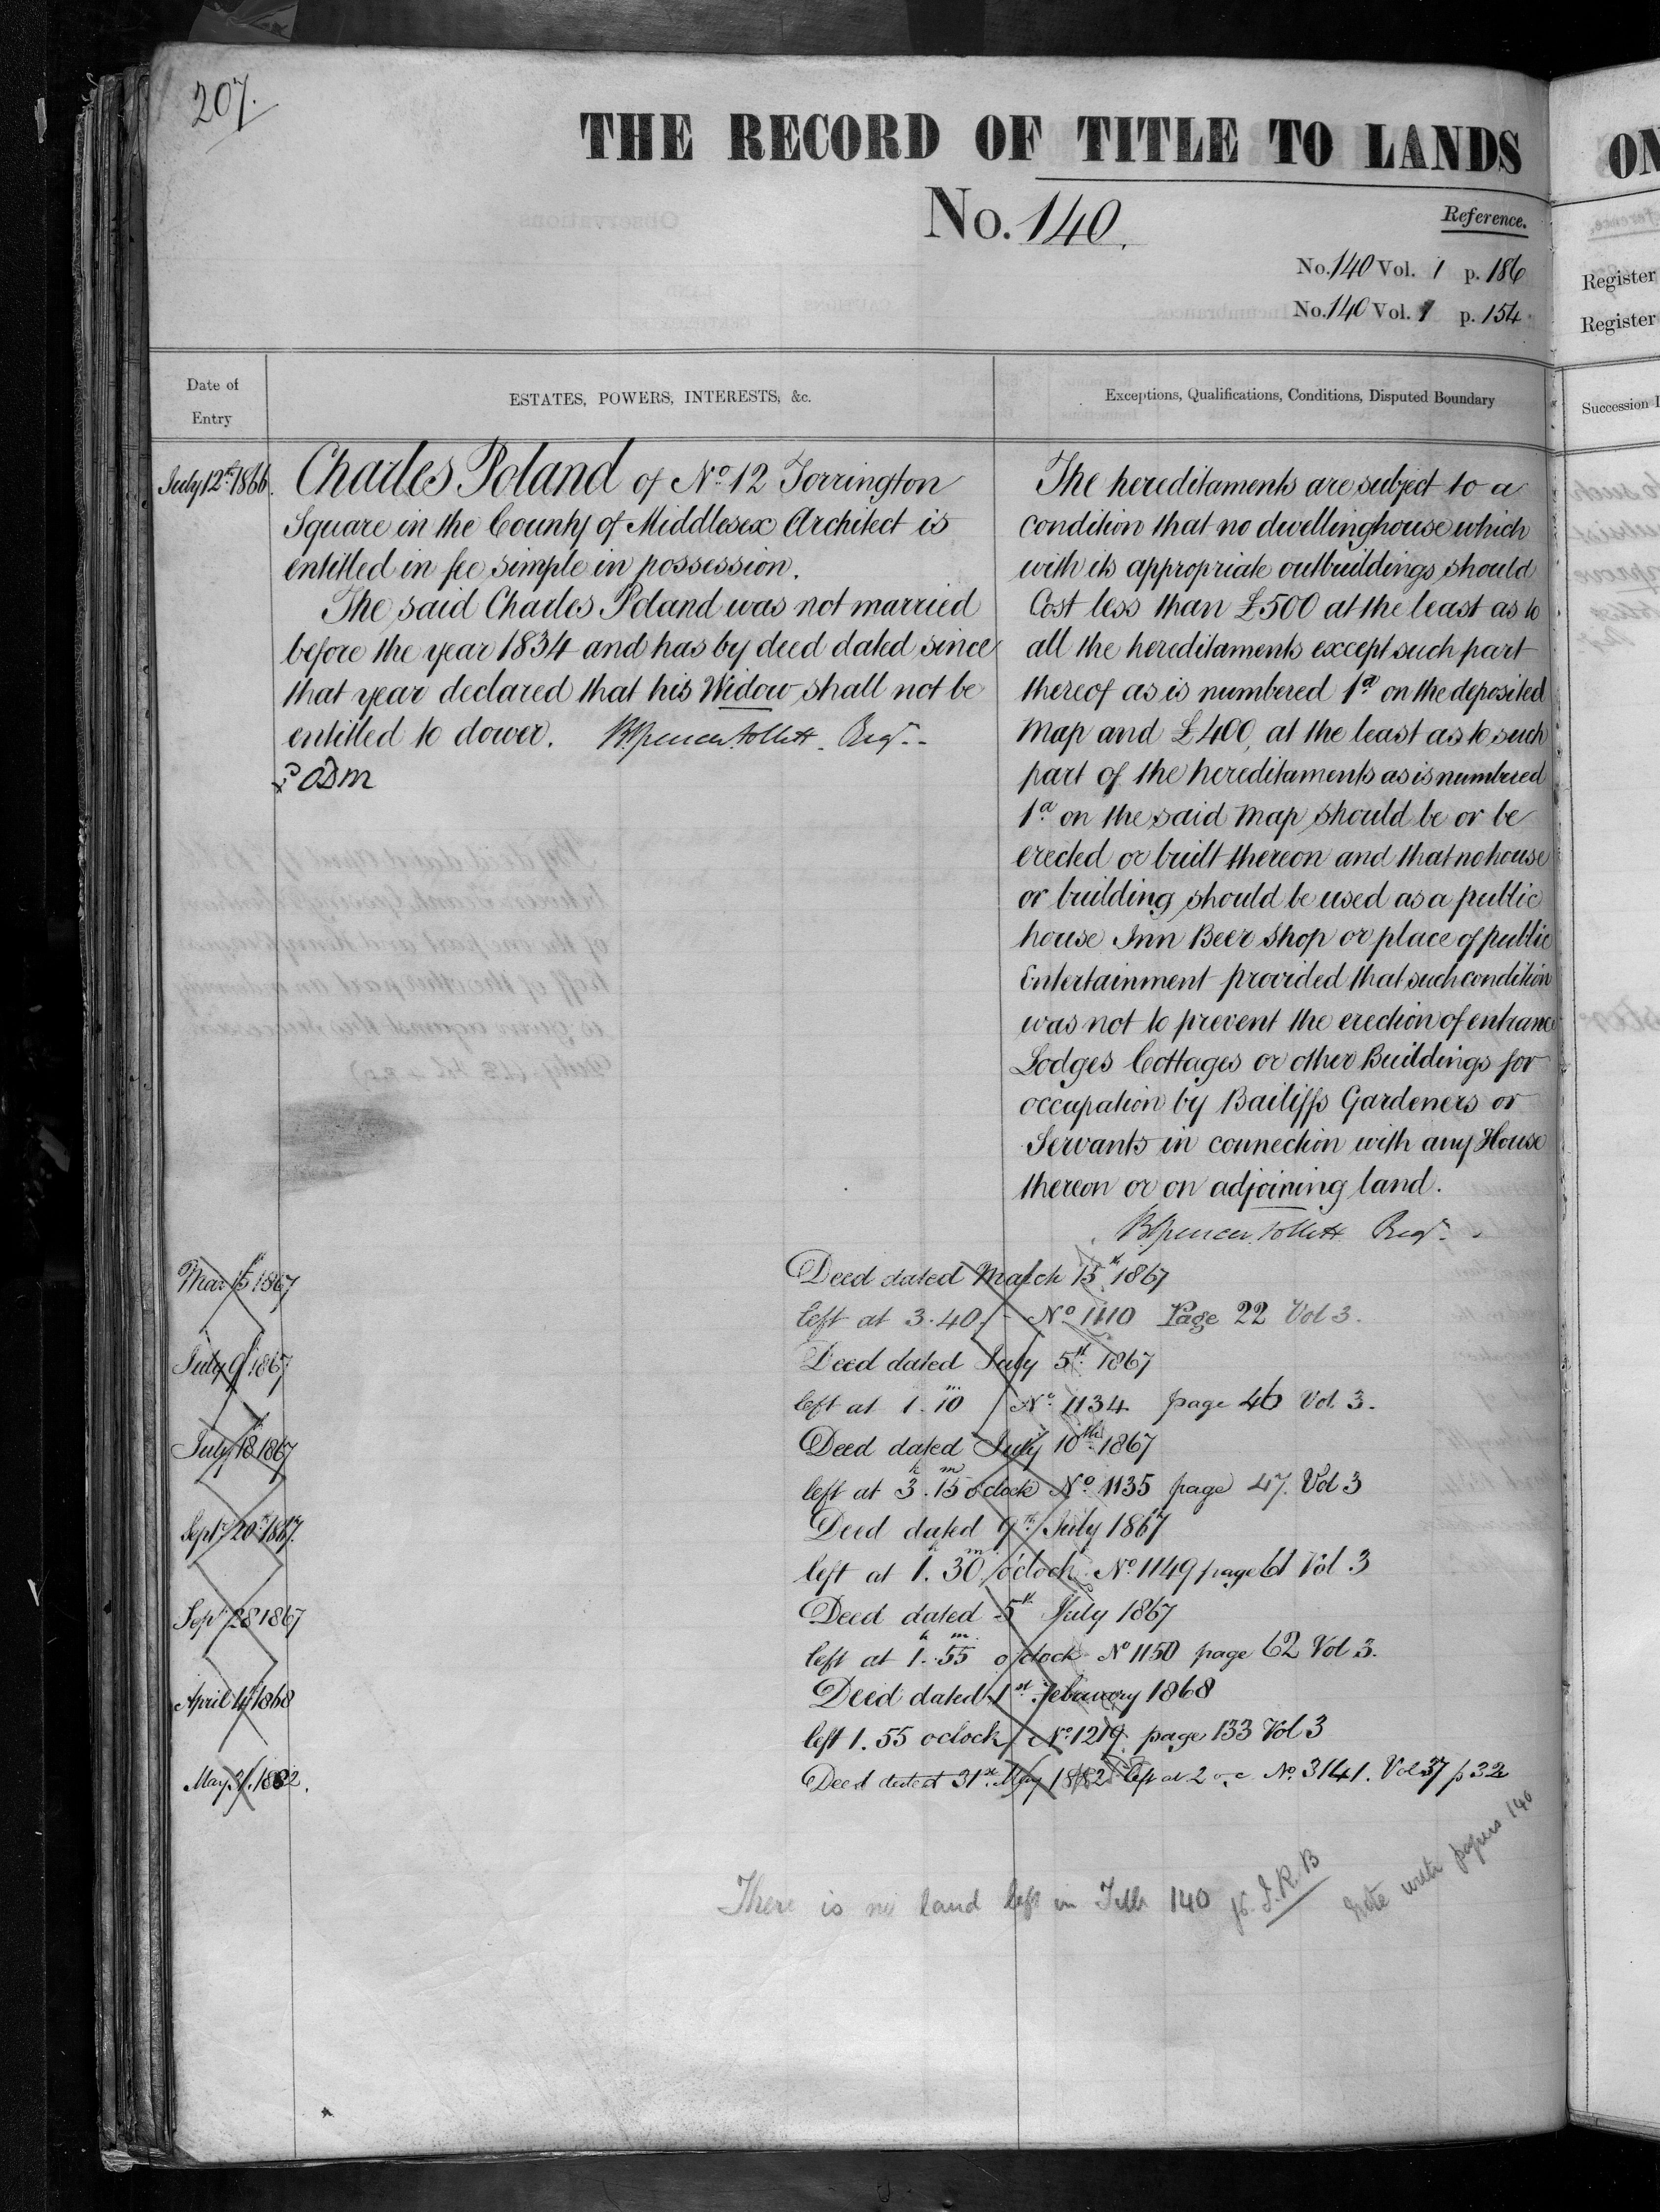 207.
THE RECORD OF TITLE TO LANDS
No. 140.
Reference.
No. 140 Vol. 1 p. 186
No. 140 Vol. 1 p. 154
Date of Entry
ESTATES, POWERS, INTERESTS, &c.
Exceptions, Qualifications, Conditions, Disputed Boundary
July 12th 1866.
Charles Poland of No 12 Torrington
Square in the County of Middlesex Architect is
entitled in fee simple in possession.
The said Charles Poland was not married
before the year 1834 and has by deed dated since
that year declared that his Widow shall not be
entitled to dower. B. Spencer Follett. Regr.
The hereditaments are subject to a
condition that no dwellinghouse which
with its appropriate outbuildings should
Cost less than £500 at the least as to
all the hereditaments except such part
thereof as is numbered 1a on the deposited
Map and £400, at the least as to such
part of the hereditaments as is numbered
1a on the said Map should be or be
erected or built thereon and that no house
or building should be used as a public
house Inn Beer Shop or place of public
Entertainment provided that such condition
was not to prevent the erection of entrance
Lodges Cottages or other Buildings for
occupation by Bailiffs Gardeners or
Servants in connection with any House
thereon or on adjoining land.
B. Spencer Follett Regr.
Mar 15th 1867
Deed dated March 15th 1867
left at 3.40 No 1110 Page 22 Vol 3.
July 9th 1867
Deed dated July 5th 1867
left at 1.10m No 1134 page 46 Vol. 3.
July 18 1867
Deed dated July 10th 1867
left at 3h.15m o'clock No 1135 page 47. Vol 3
Septr 20th 1867.
Deed dated 9th July 1867
left at 1h.30m o'clock No 1149 page 61 Vol 3
Sepr 28 1867
Deed dated 5th July 1867
left at 1h.55m o'clock No 1150 page 62 Vol 3.
April 4th 1868
Deed dated 1st February 1868
left 1.55 oclock No 1219 page 133 Vol 3
May 31. 1882.
Deed dated 31st May 1882 left at 2 o.c No. 3141. Vol 37 p 32
There is no land left in Title 140
J.R.B
Note with papers 140
ON
Register
Register